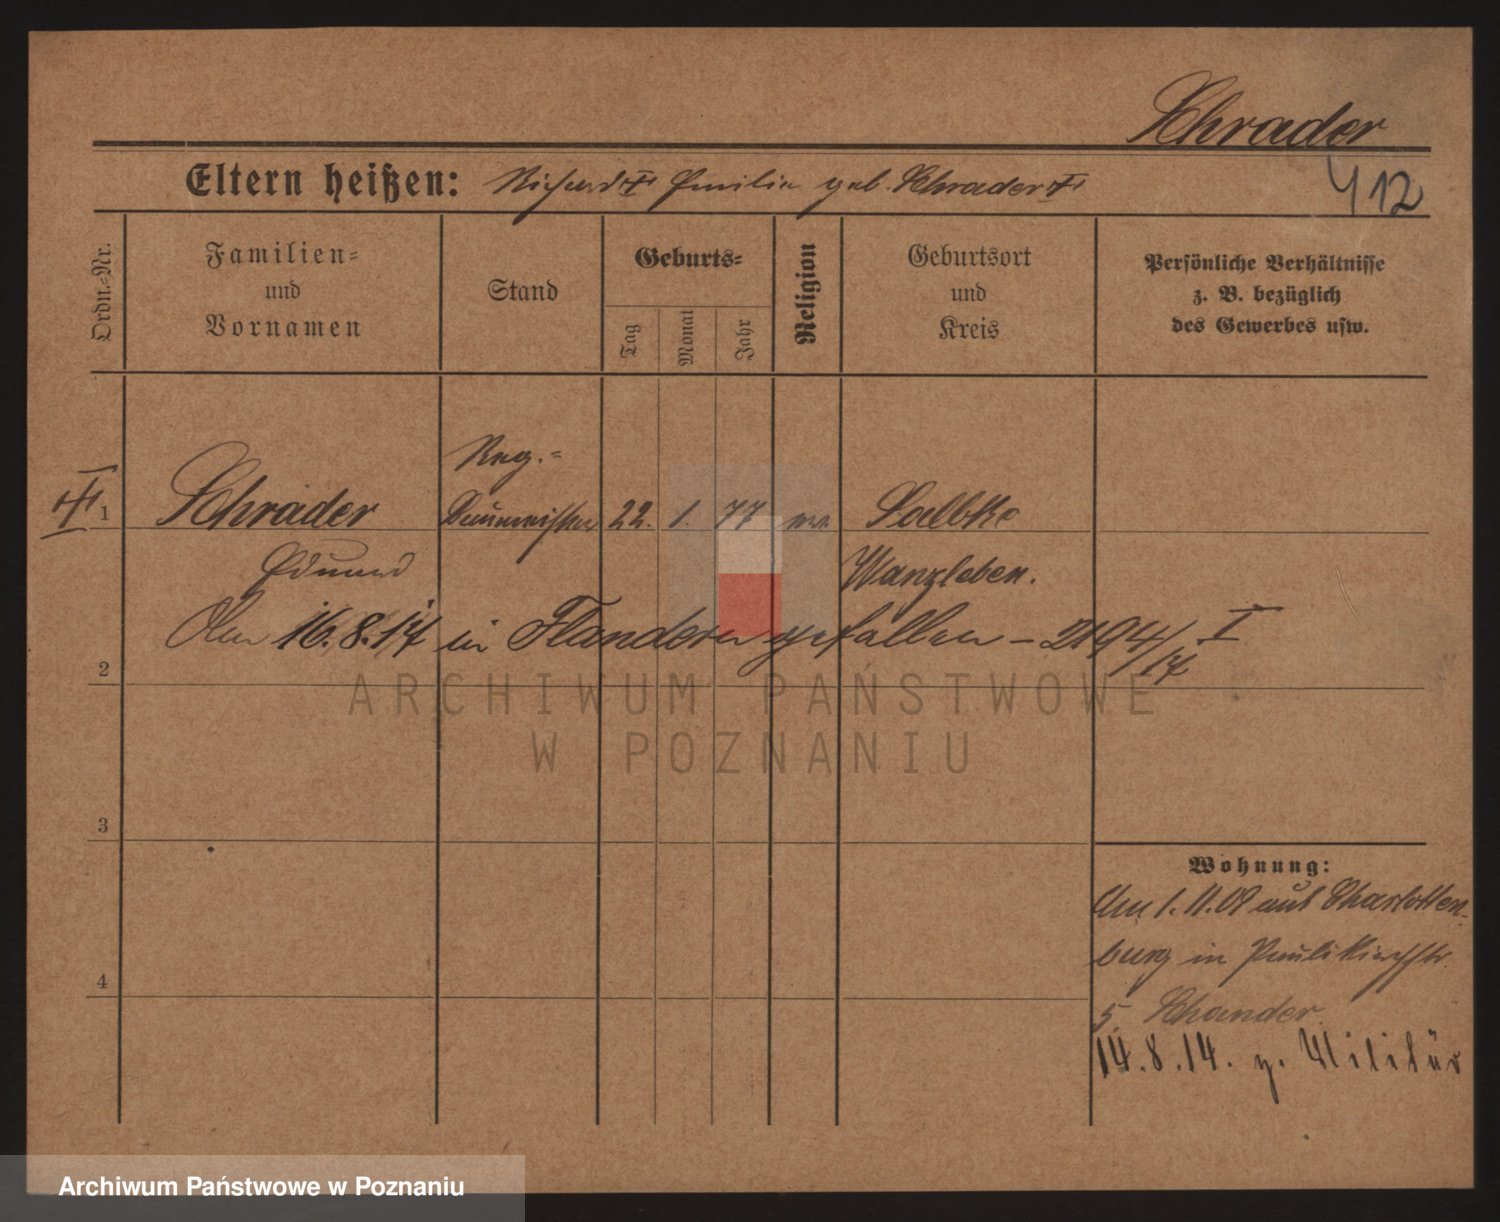 Schrader
412
Eltern heißen: Richard Emilie geb. Schrader
Ordn.-Nr.
Familien-
und
Vornamen
Stand
Geburts-
Tag
Monat
Jahr
Religion
Geburtsort
und
Kreis
Persönliche Verhältnisse
z. B. bezüglich
des Gewerbes usw.
Reg.-
1 Schrader Baumeister 22. 1. 77 ev Salbke
Eduard Wanzleben.
Am 16.8.17 in Flandern gefallen – 2194/17 I
2
ARCHIWUM PAŃSTWOWE
W POZNANIU
3
Wohnung:
Am 1.11.09 aus Charlotten-
burg in Paulikirchstr.
4
5
14.8.14. z. Militär
Archiwum Państwowe w Poznaniu